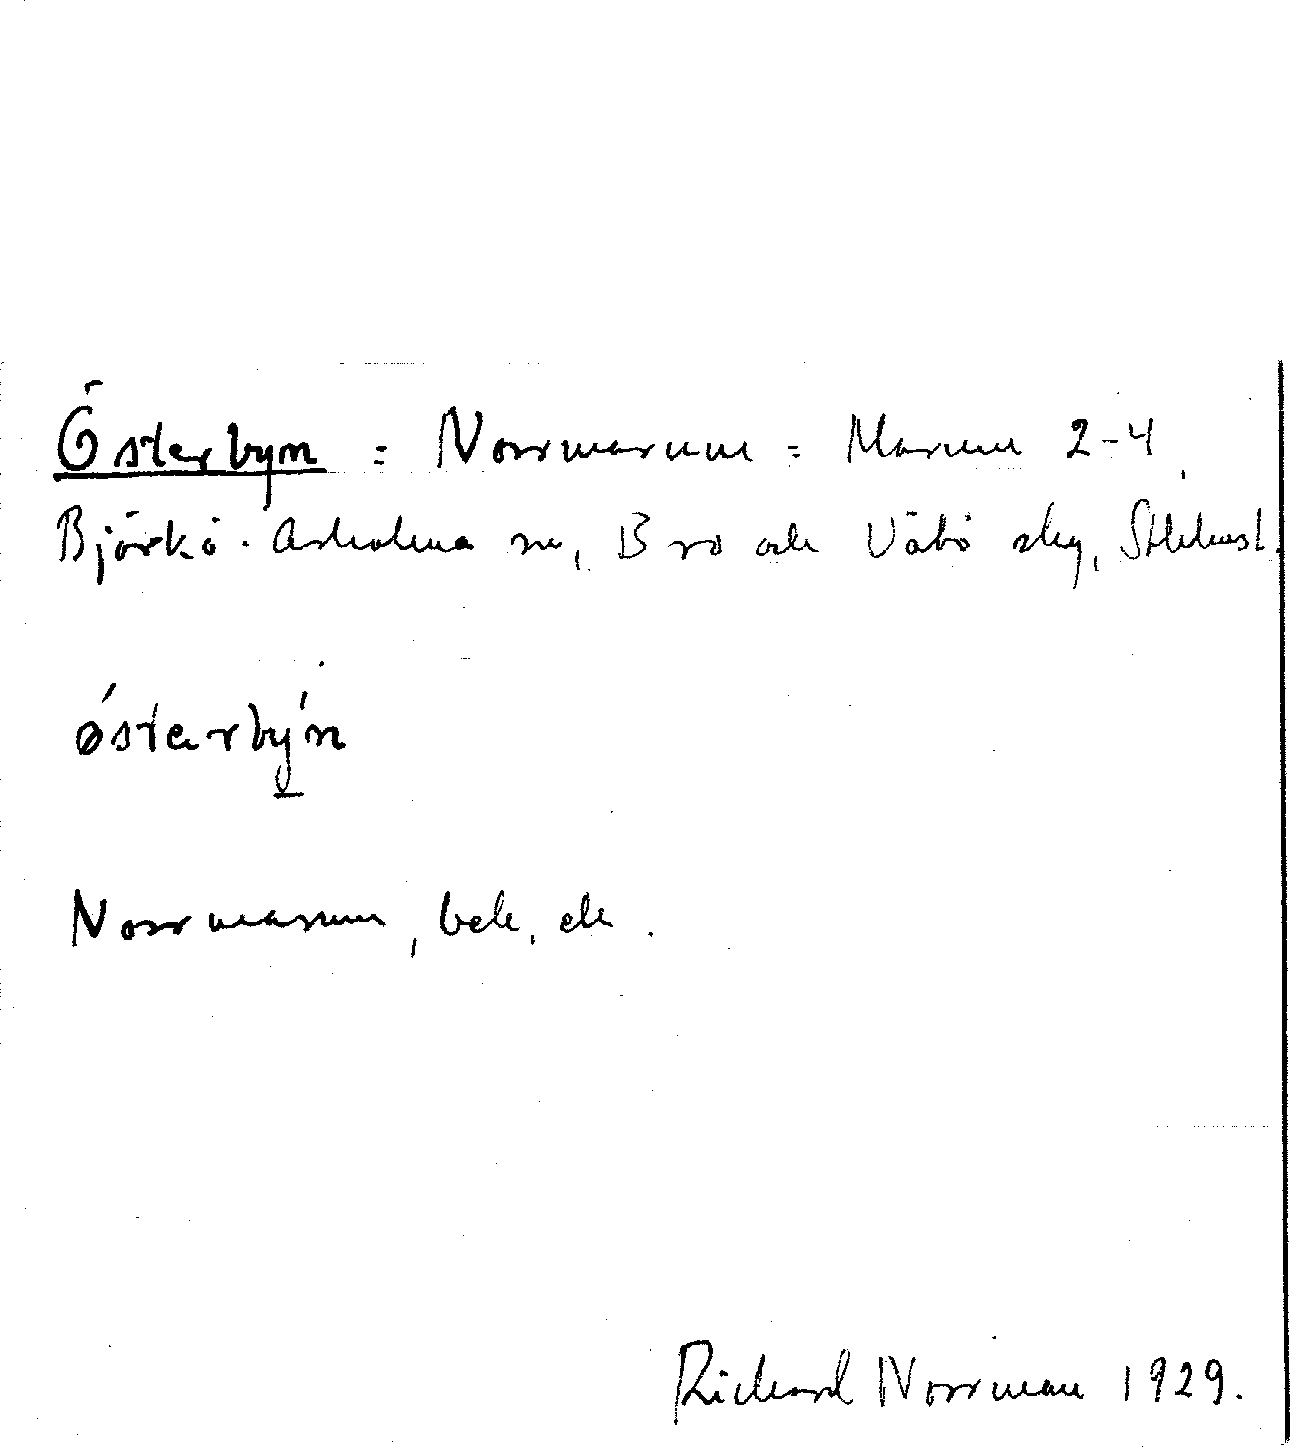 Österbyn = Norrmarum = Marum 2-4,
Björkö-Arholma sn, Bro och Vätö skg, Sthlms l.
östarby'n
Norrmarum,
Richard Norrman 1929.